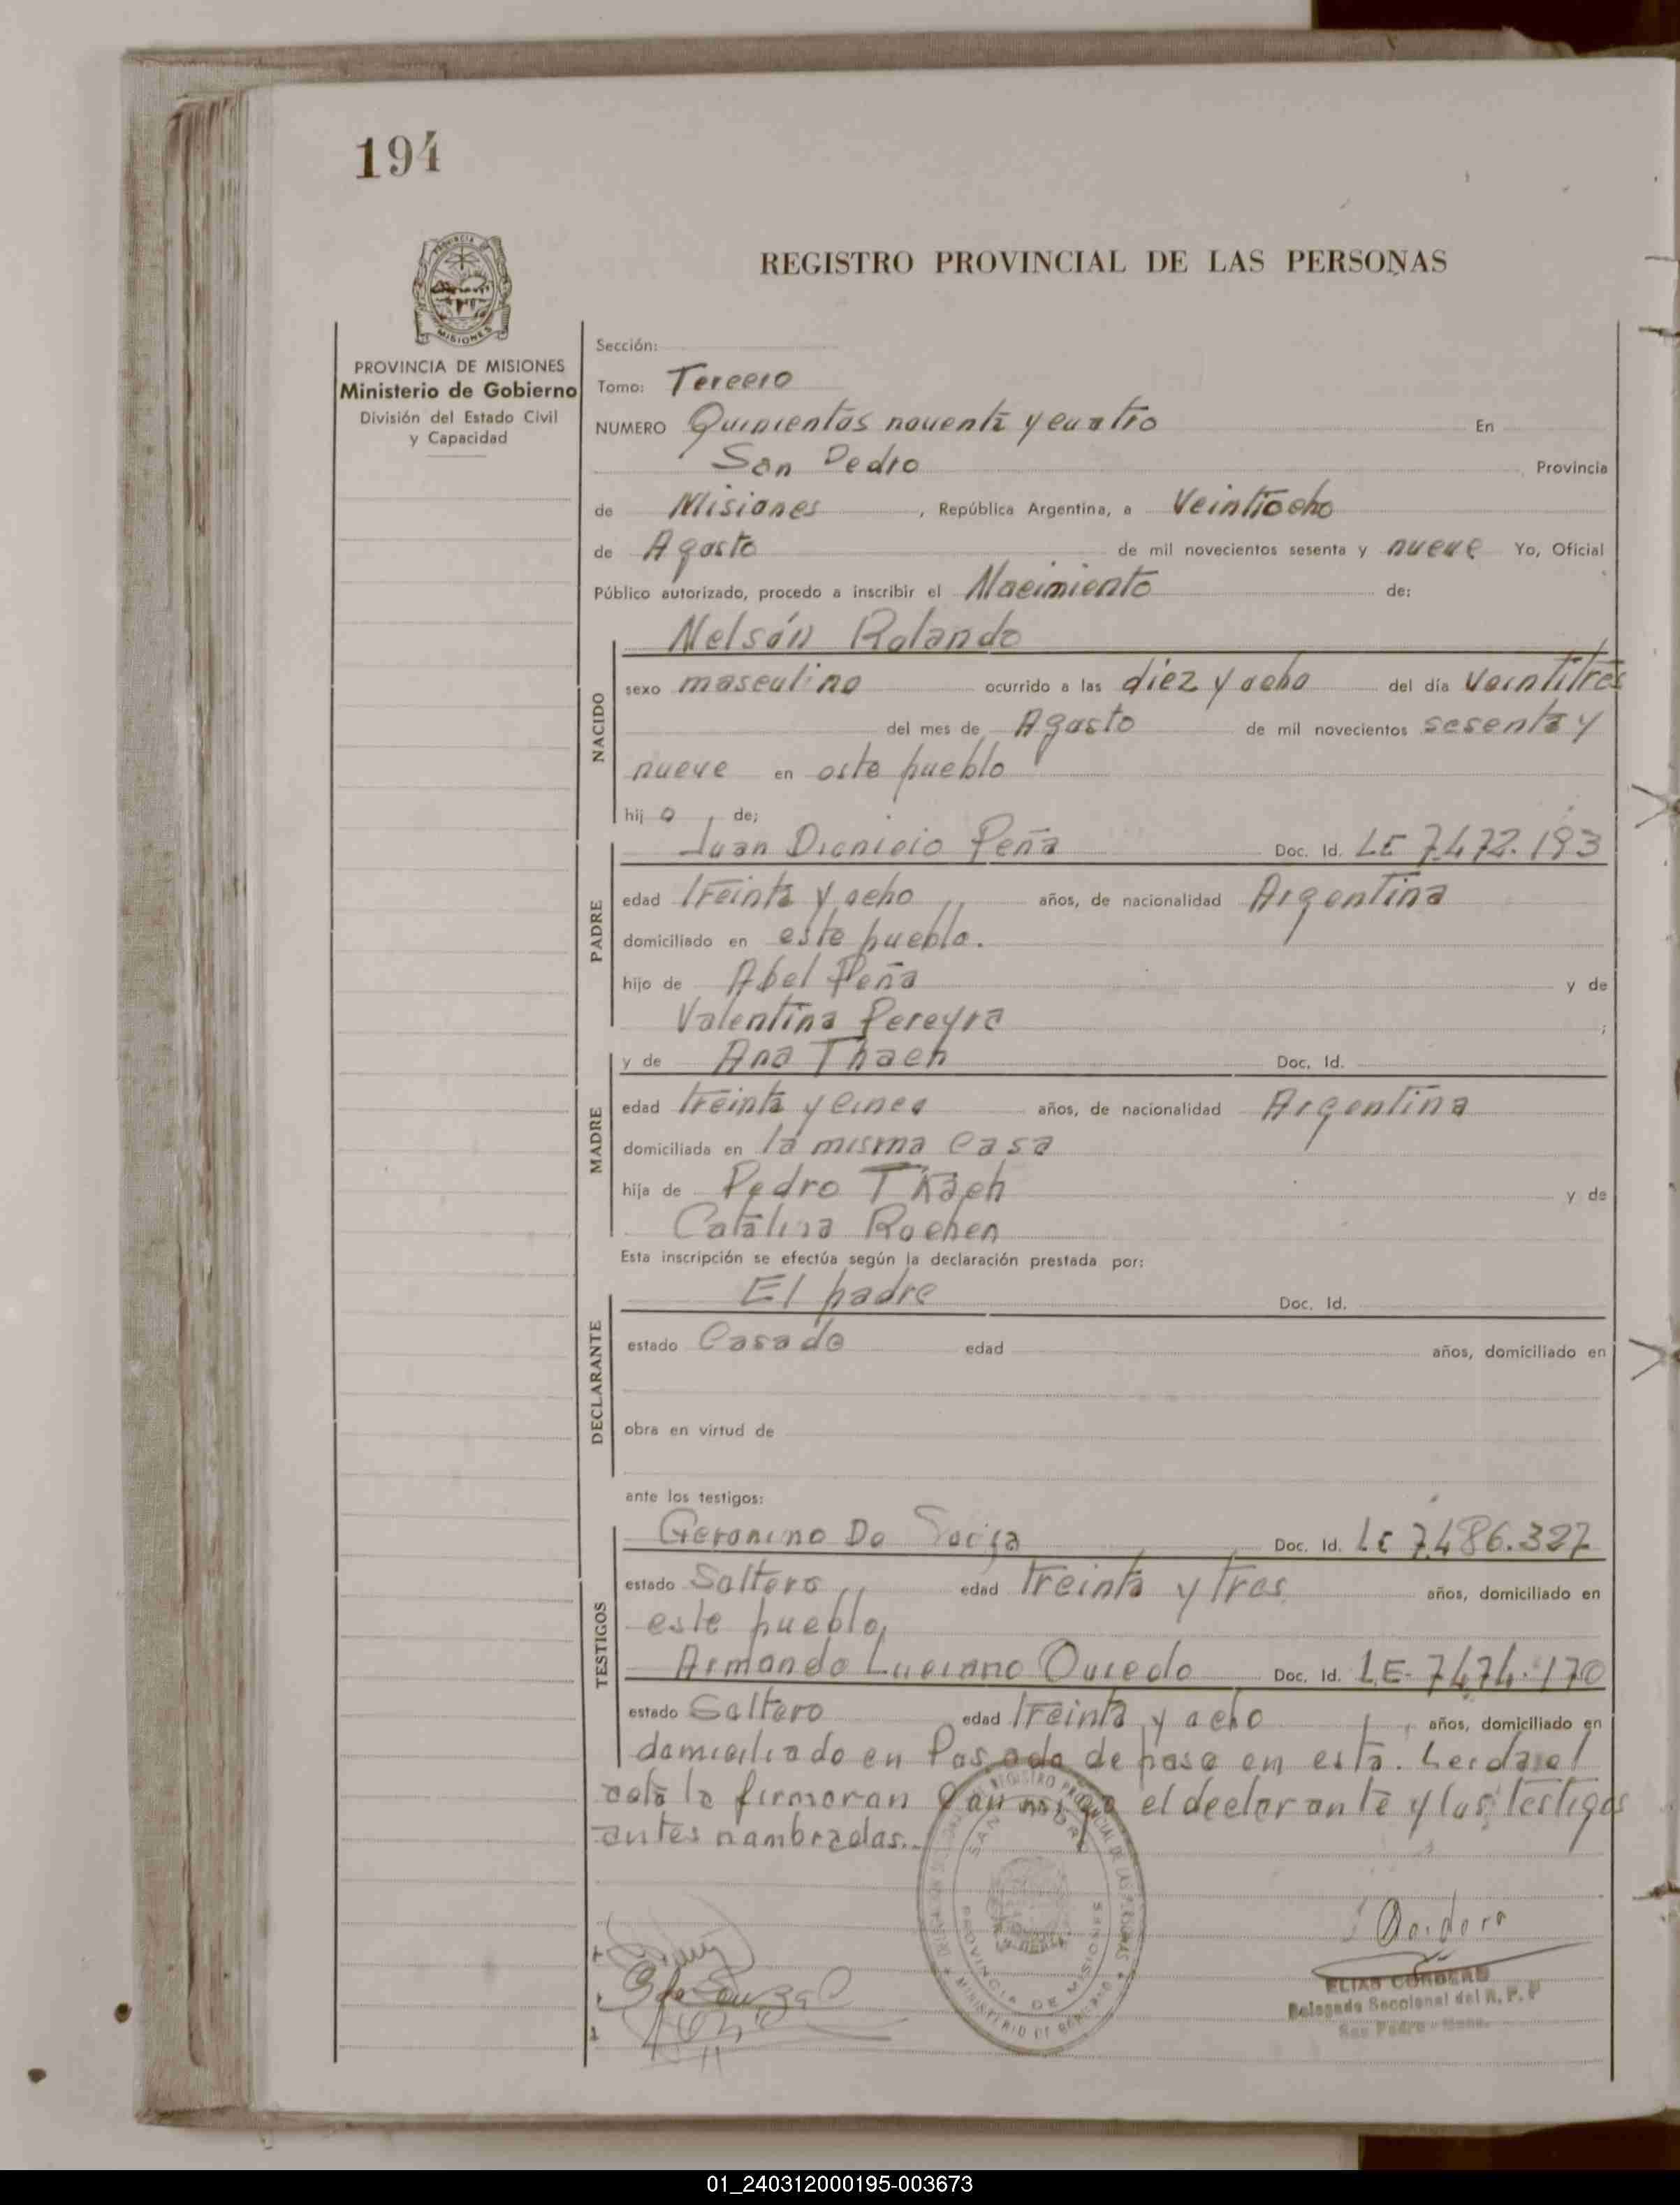 194
REGISTRO PROVINCIAL DE LAS PERSONAS
PROVINCIA DE MISIONES
Ministerio de Gobierno
División del Estado Civil
y Capacidad
Sección:
Tomo: Tercero
NUMERO Quinientos noventa y cuatro En
San Pedro Provincia
de Misiones, República Argentina, a Veintiocho
de Agosto de mil novecientos sesenta y nueve Yo, Oficial
Público autorizado, procedo a inscribir el Nacimiento de:
Nelsón Rolando
NACIDO
sexo masculino ocurrido a las diez y ocho del día veintitres
del mes de Agosto de mil novecientos sesenta y
nueve en este pueblo
hij o de;
Juan Dionicio Peña Doc. Id. LE 7.472.193
PADRE
edad treinta y ocho años, de nacionalidad Argentina
domiciliado en este pueblo.
hijo de Abel Peña y de
Valentina Pereyra ;
y de Ana Thaeh Doc. Id.
MADRE
edad treinta y cinco años, de nacionalidad Argentina
domiciliada en la misma casa
hija de Pedro Thaeh y de
Catalina Rochen
Esta inscripción se efectúa según la declaración prestada por:
El padre Doc. Id.
DECLARANTE
estado Casado edad años, domiciliado en
obra en virtud de
ante los testigos:
Geronimo Do Doc. Id. LE 7.486.327
TESTIGOS
estado Soltero edad treinta y tres años, domiciliado en
este pueblo,
Armando Luciano Ovcedo Doc. Id. LE- 7474.170
estado Soltero edad treinta y ocho años, domiciliado en
domiciliado en Posadas de paso en esta. Leida el
acta la firmaran conmigo el declarante y los testigos
antes nombrados.
REGISTRO PROVINCIAL DE LAS PERSONAS
SAN PEDRO
PROVINCIA DE MISIONES
MINISTERIO DE GOBIERNO
ELIAS CORDERO
Delegado Seccional del R. P. P
San Pedro - Mnes.
01_240312000195-003673